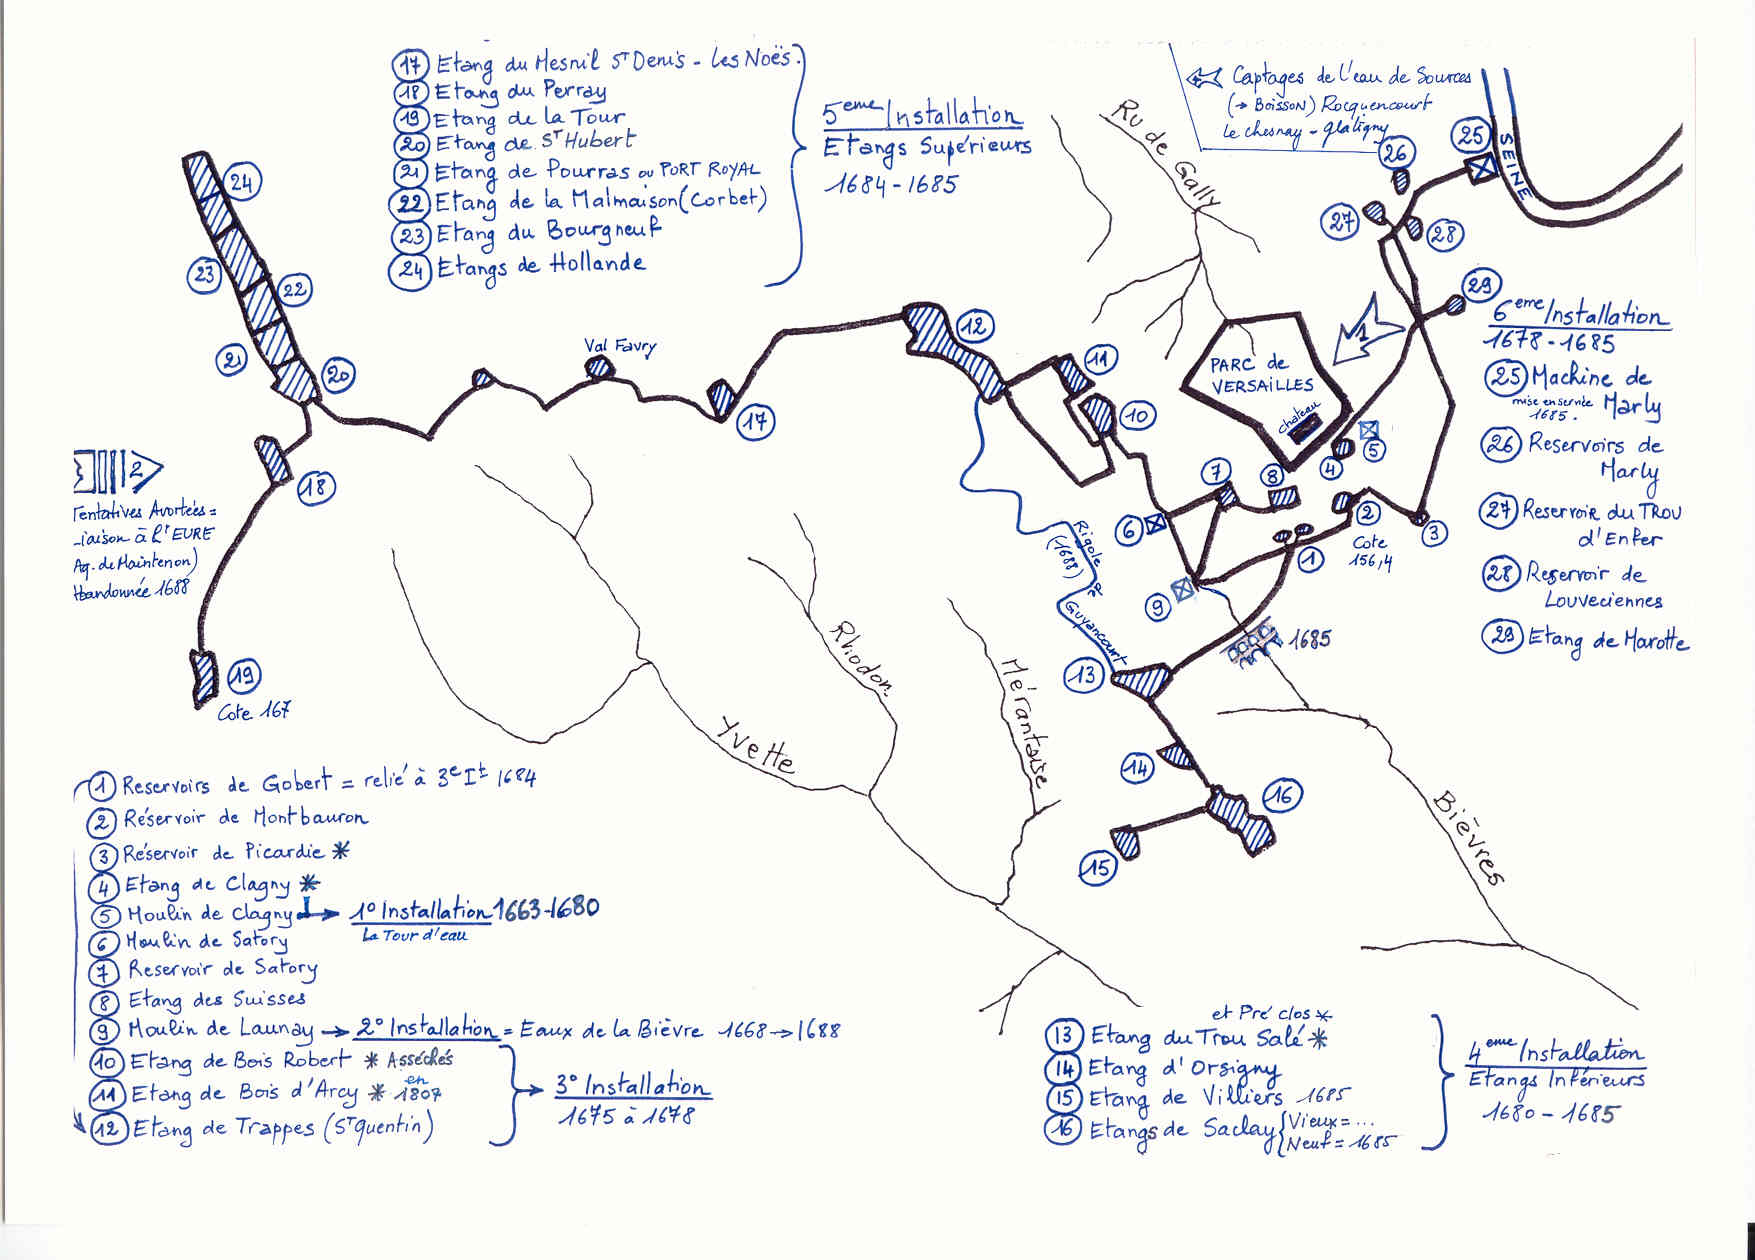 17 Etang du Mesnil St Denis - Les Noës.
18 Etang du Perray
19 Etang de la Tour
20 Etang de St Hubert
21 Etang de Pourras ou PORT ROYAL
22 Etang de la Malmaison (Corbet)
23 Etang du Bourgneuf
24 Etangs de Hollande
5eme Installation
Etangs Supérieurs
1684 - 1685
Captages de l'eau de Sources
(→ BOISSON) Rocquencourt
Le Chesnay - Glatigny
Ru de Gally
SEINE
25
26
27
28
29
24
23
22
21
20
Val Favry
17
12
11
10
1
PARC de
VERSAILLES
château
5
4
7
8
6
2
Cote
156,4
3
1
9
Rigole
(1688)
de
Guyancourt
1685
13
14
15
16
18
19
Cote 167
2
Tentatives Avortées =
Liaison à l'EURE
Aq. de Maintenon)
Abandonnée 1688
6eme Installation
1678 - 1685
25 Machine de
Marly
mise en service
1685.
26 Reservoirs de
Marly
27 Reservoir du TROU
d'Enfer
28 Reservoir de
Louveciennes
29 Etang de Marotte
Yvette
Rhodon
Mérantaise
Bièvres
1 Reservoirs de Gobert = relié à 3e It 1684
2 Réservoir de Montbauron
3 Réservoir de Picardie *
4 Etang de Clagny *
5 Moulin de Clagny → 1° Installation 1663-1680
La Tour d'eau
6 Moulin de Satory
7 Reservoir de Satory
8 Etang des Suisses
9 Moulin de Launay → 2° Installation = Eaux de la Bièvre 1668 → 1688
10 Etang de Bois Robert * Asséchés
11 Etang de Bois d'Arcy * en 1807
12 Etang de Trappes (St Quentin)
3° Installation
1675 à 1678
et Pré clos *
13 Etang du Trou Salé *
14 Etang d'Orsigny
15 Etang de Villiers 1685
16 Etangs de Saclay { Vieux = ...
Neuf = 1685
4eme Installation
Etangs Inférieurs
1680 - 1685